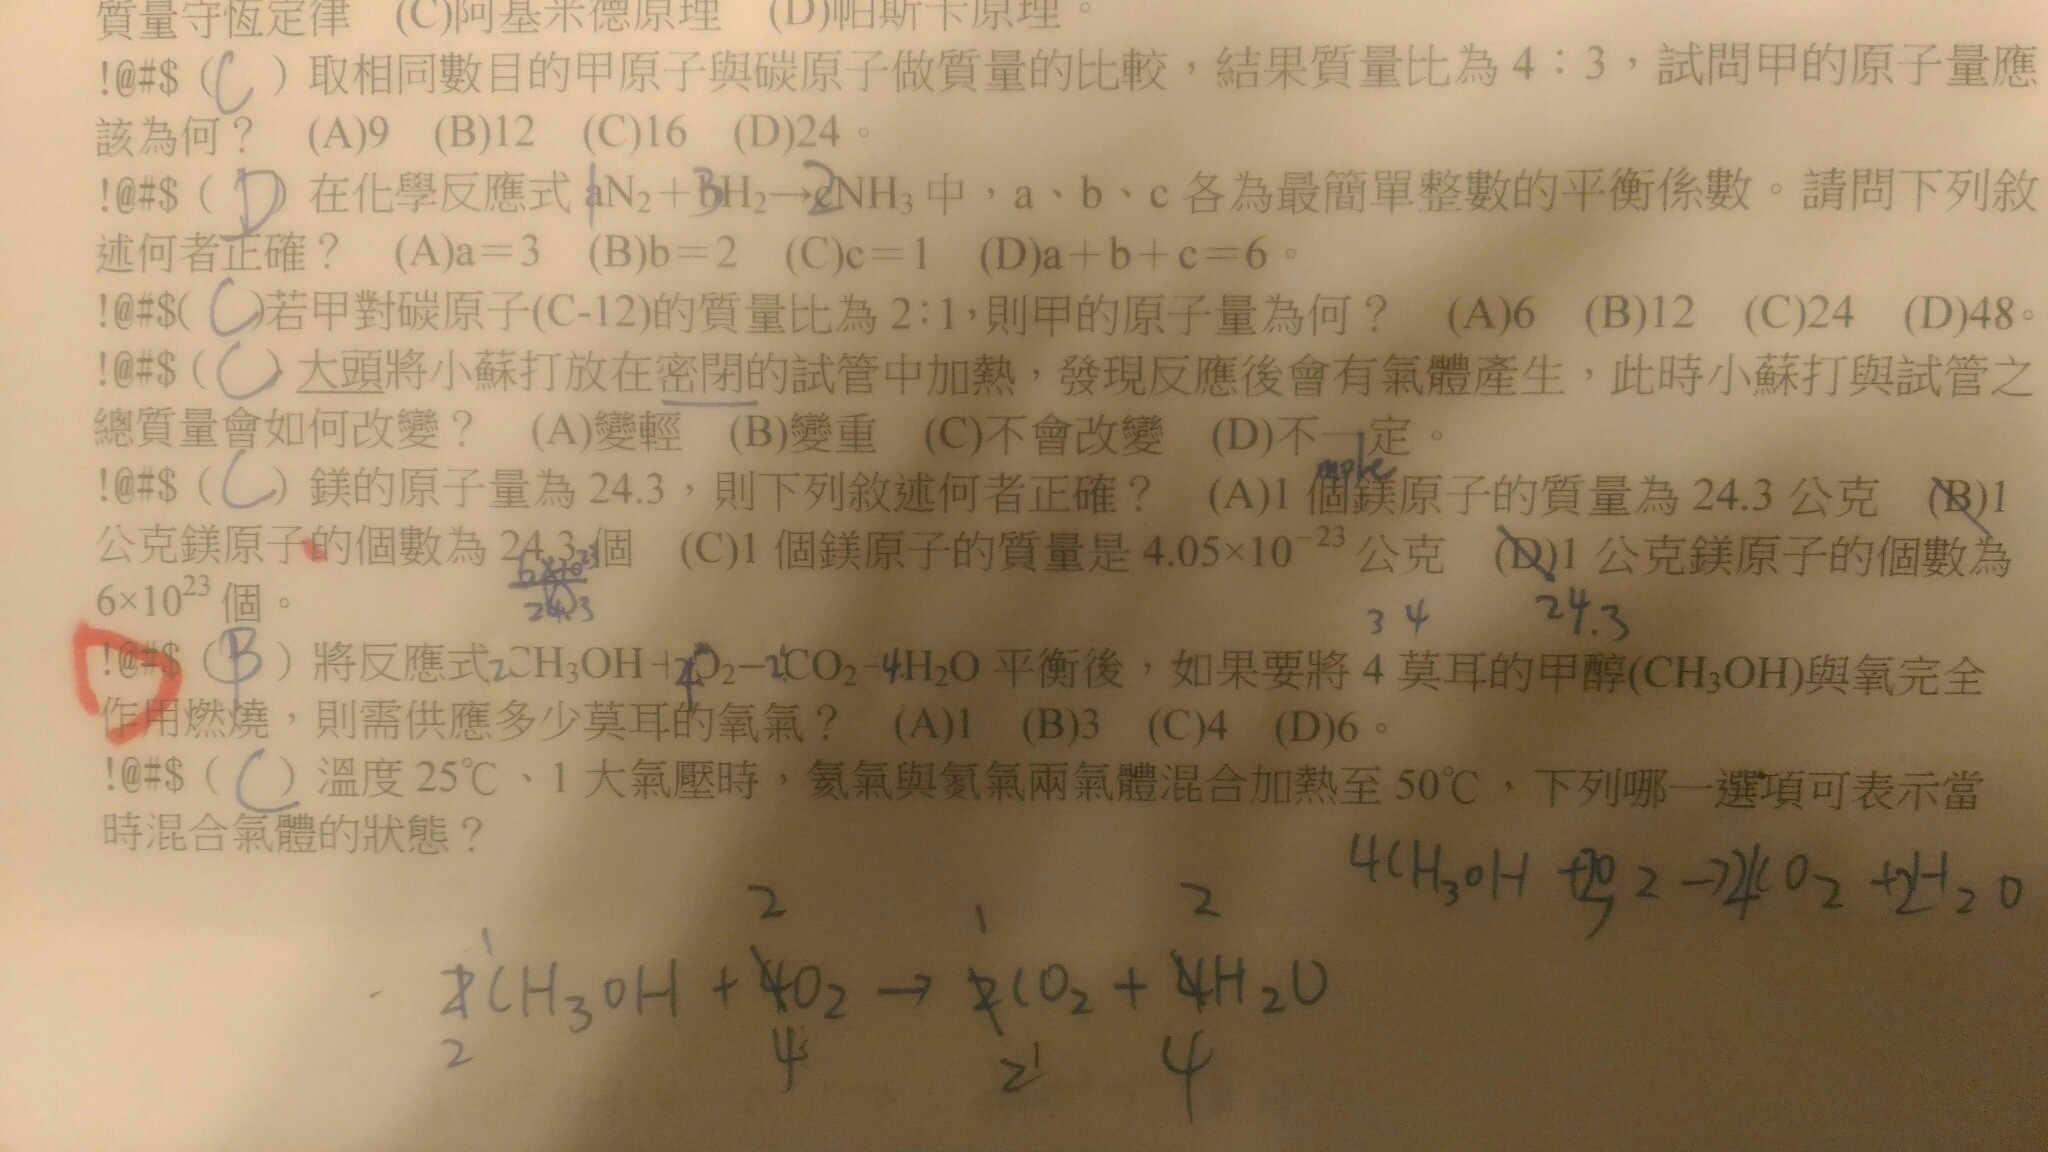 質量守恆定律 (C)阿基米德原理 (D)帕斯卡原理。
!@#$ ( C ) 取相同數目的甲原子與碳原子做質量的比較，結果質量比為 4：3，試問甲的原子量應
該為何？ (A)9 (B)12 (C)16 (D)24。
!@#$ ( D ) 在化學反應式 aN₂＋bH₂→cNH₃ 中，a、b、c 各為最簡單整數的平衡係數。請問下列敘
述何者正確？ (A)a＝3 (B)b＝2 (C)c＝1 (D)a＋b＋c＝6。
!@#$( C )若甲對碳原子(C-12)的質量比為 2：1，則甲的原子量為何？ (A)6 (B)12 (C)24 (D)48。
!@#$ ( C ) 大頭將小蘇打放在密閉的試管中加熱，發現反應後會有氣體產生，此時小蘇打與試管之
總質量會如何改變？ (A)變輕 (B)變重 (C)不會改變 (D)不一定。
mole
!@#$ ( C ) 鎂的原子量為 24.3，則下列敘述何者正確？ (A)1 個鎂原子的質量為 24.3 公克 (B)1
公克鎂原子的個數為 24.3 個 (C)1 個鎂原子的質量是 4.05×10⁻²³ 公克 (D)1 公克鎂原子的個數為
6×10²³ 個。
24.3
3 4 24.3
!@#$ ( B ) 將反應式2CH₃OH＋O₂－2CO₂ 4H₂O 平衡後，如果要將 4 莫耳的甲醇(CH₃OH)與氧完全
作用燃燒，則需供應多少莫耳的氧氣？ (A)1 (B)3 (C)4 (D)6。
!@#$ ( C ) 溫度 25℃、1 大氣壓時，氦氣與氮氣兩氣體混合加熱至 50℃，下列哪一選項可表示當
時混合氣體的狀態？
4CH₃OH + O₂ → CO₂ + H₂O
1 2 1 2
CH₃OH + 4O₂ → CO₂ + 4H₂O
2 4 2 4